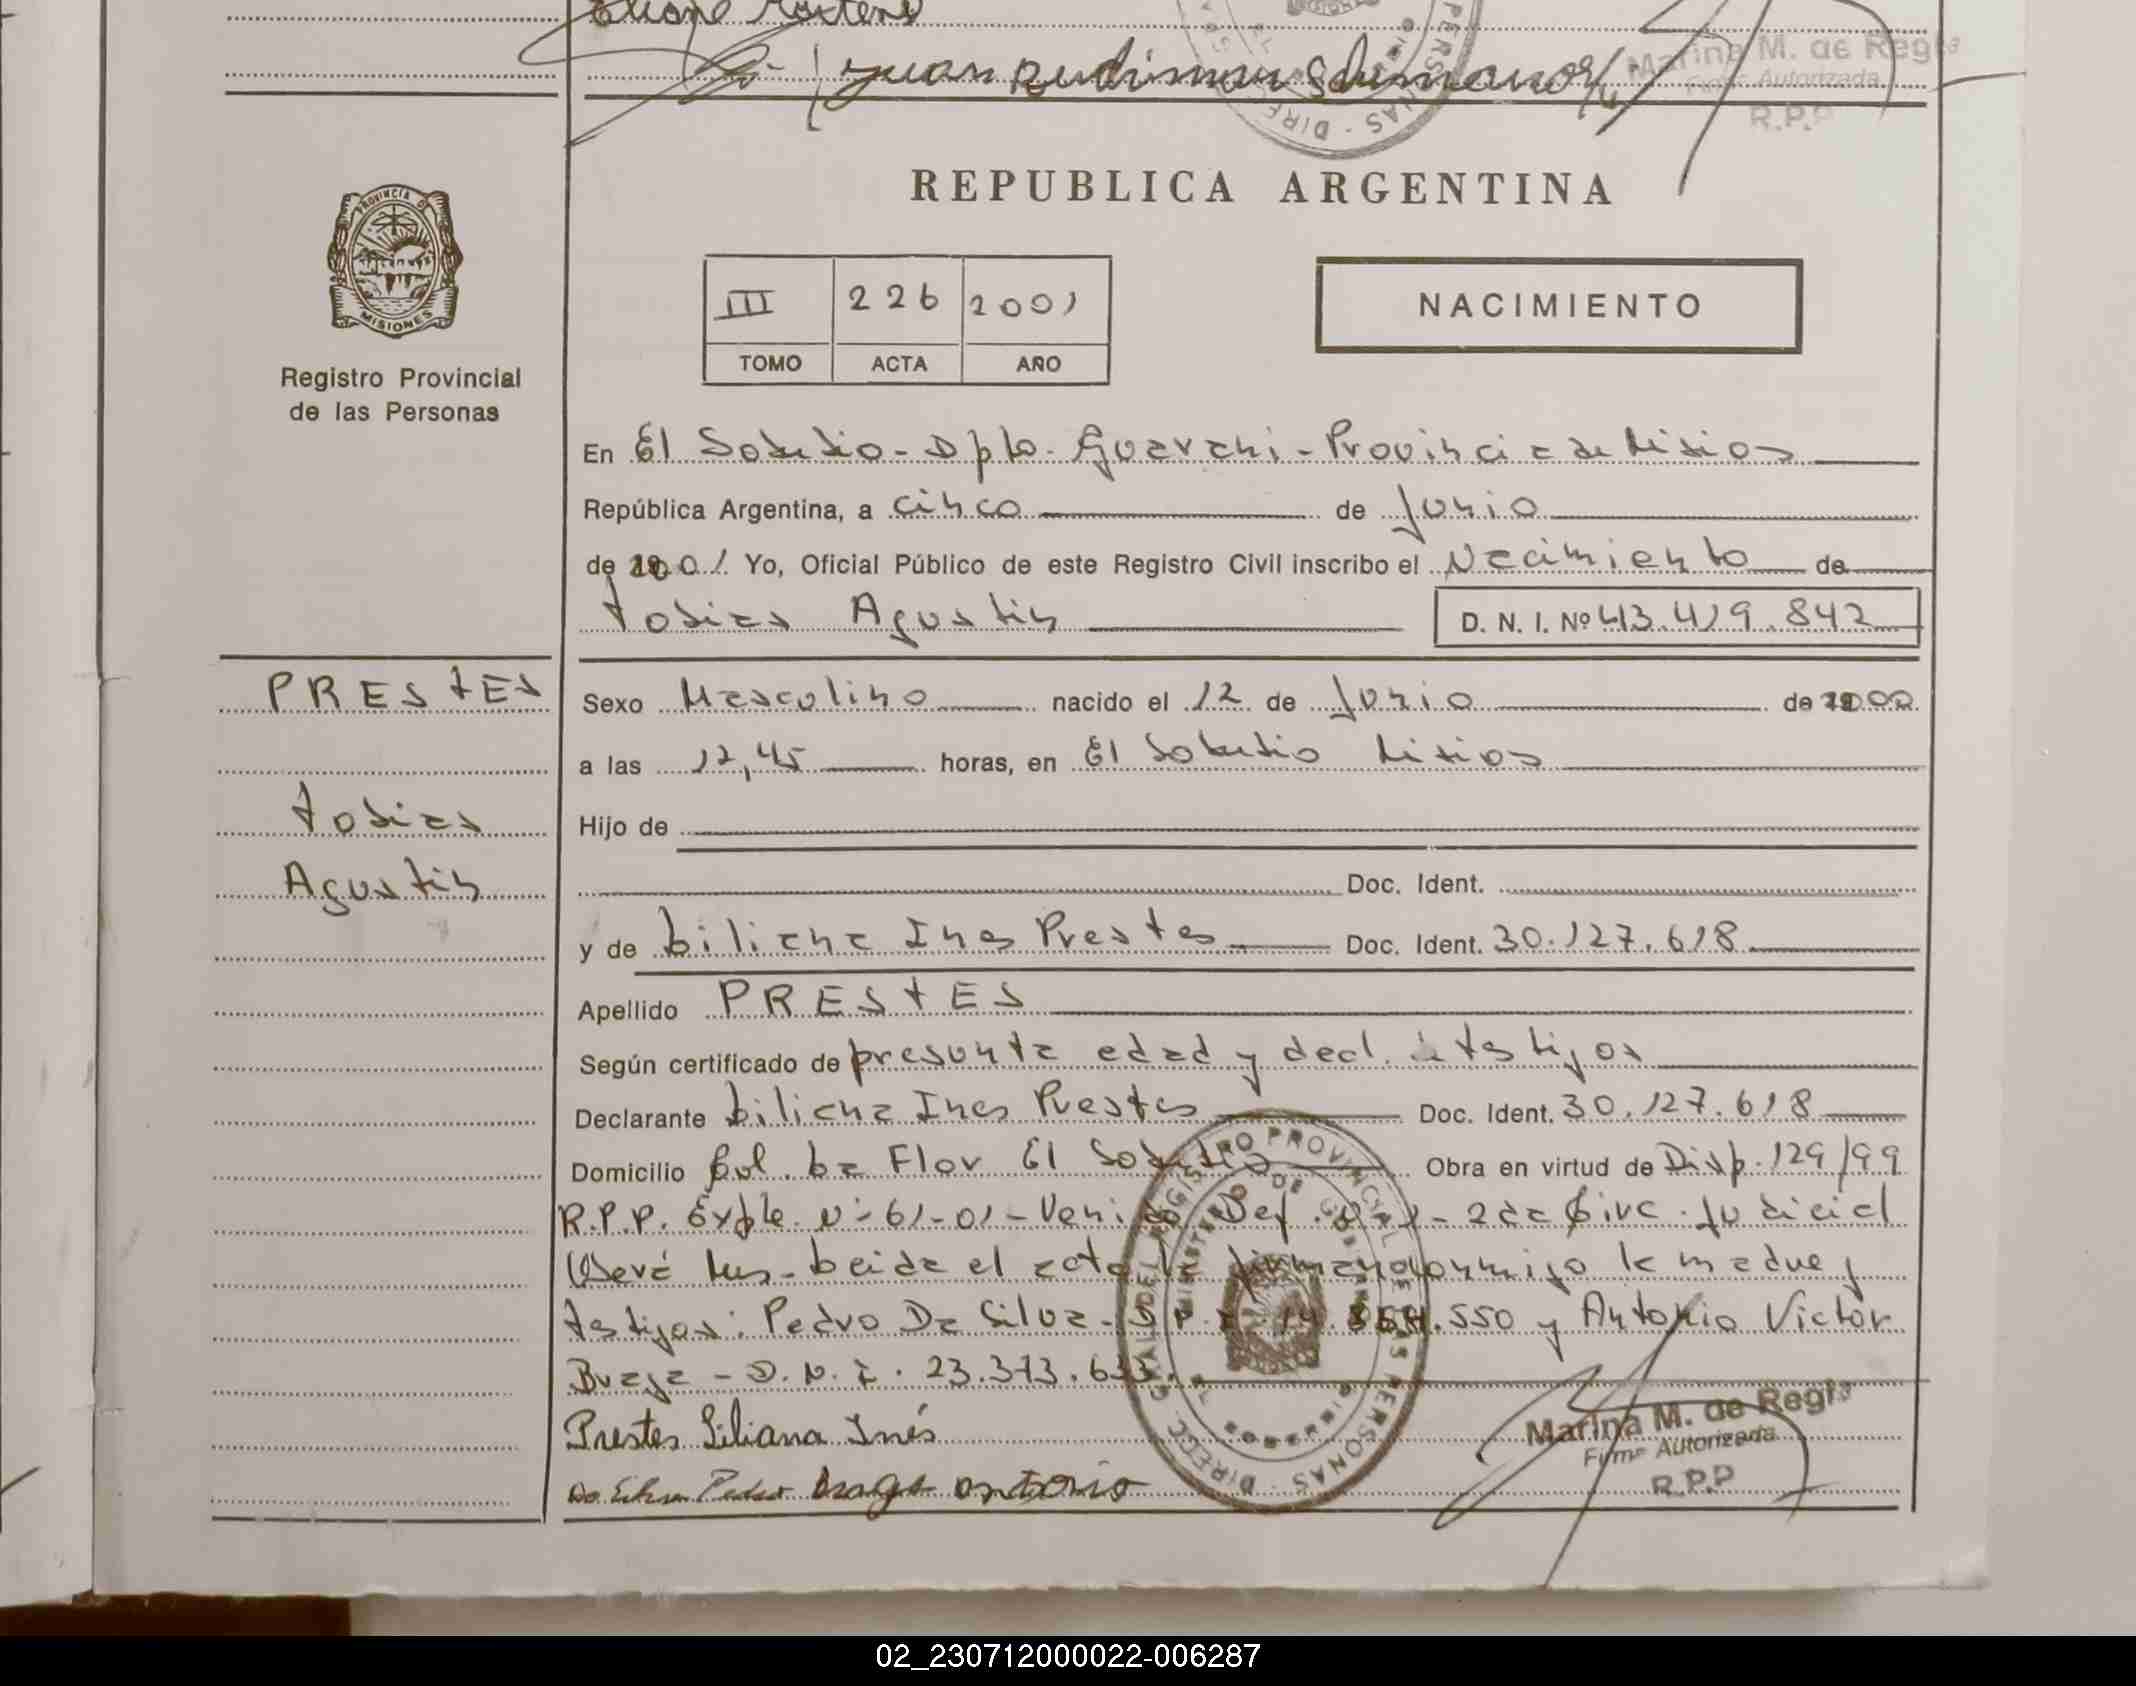 Juan
Marina M. de Regis
Firma Autorizada
R.P.P
PROVINCIA DE
MISIONES
Registro Provincial
de las Personas
REPUBLICA ARGENTINA
III 226 2001
TOMO ACTA AÑO
NACIMIENTO
En El Soberbio - Dpto. Guarani - Provincia de Misiones
República Argentina, a cinco de Junio
de 2001 Yo, Oficial Público de este Registro Civil inscribo el Nacimiento de
Tobias Agustin D. N. I. Nº 43.419.842
PRESTES
Tobias
Agustin
Sexo Masculino nacido el 12 de Junio de 2000
a las 12,45 horas, en El Soberbio Misiones
Hijo de
Doc. Ident.
y de Liliana Ines Prestes Doc. Ident. 30.127.618
Apellido PRESTES
Según certificado de presunta edad y decl. testigos
Declarante Liliana Ines Prestes Doc. Ident. 30.127.618
Domicilio Col. La Flor El Soberbio Obra en virtud de Disp. 129/99
R.P.P. Expte. Nº 61-01 - Def. - 2da Circ. Judicial
Oberá Mns. Leida el acta la firman conmigo la madre y
testigos: Pedro Da Silva - D.N.I. .550 y Antonio Victor
Braga - D.N.I. 23.373.633.
Prestes Liliana Inés
Da Silva Pedro Braga Antonio
Marina M. de Regis
Firma Autorizada
R.P.P
02_230712000022-006287